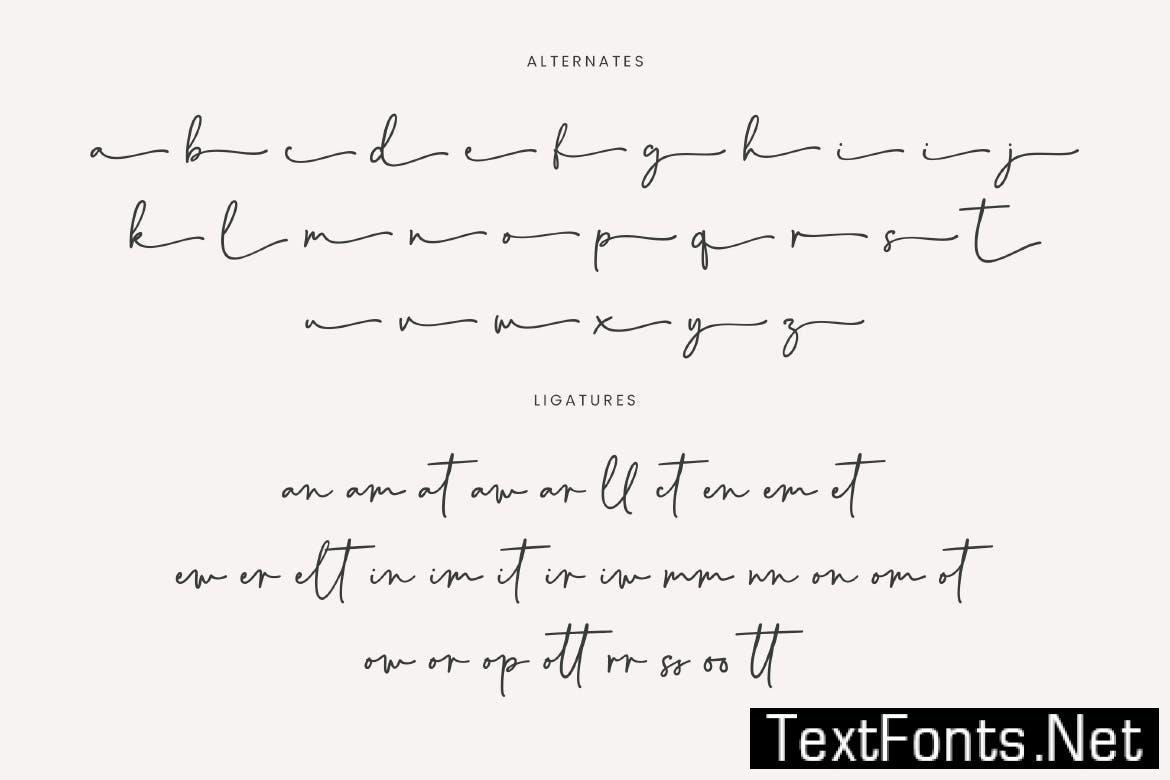 ALTERNATES
a b c d e f g h i i j
k l m n o p q r s t
u v w x y z
LIGATURES
an am at aw ar ll ct en em et
ew er elt in im it ir iw mm nn on om ot
ow or op ott rr ss oo tt
TextFonts.Net